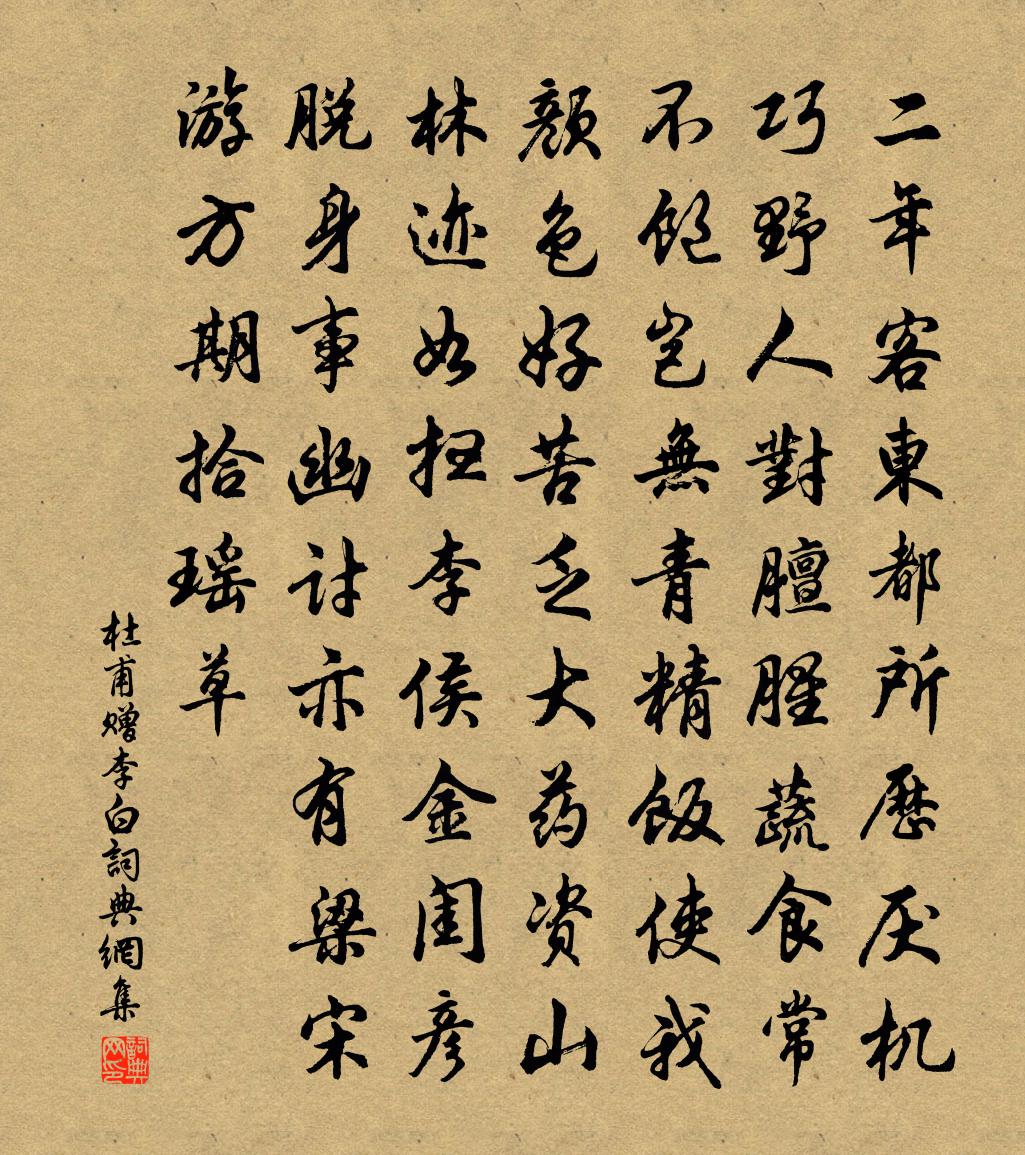 二年客東都所歷厌机
巧野人對膻腥蔬食常
不飽岂無青精飯使我
颜色好苦乏大药资山
林迹如扫李侯金闺彦
脱身事幽讨亦有梁宋
游方期拾瑶草
杜甫赠李白詞典網集
詞典网印